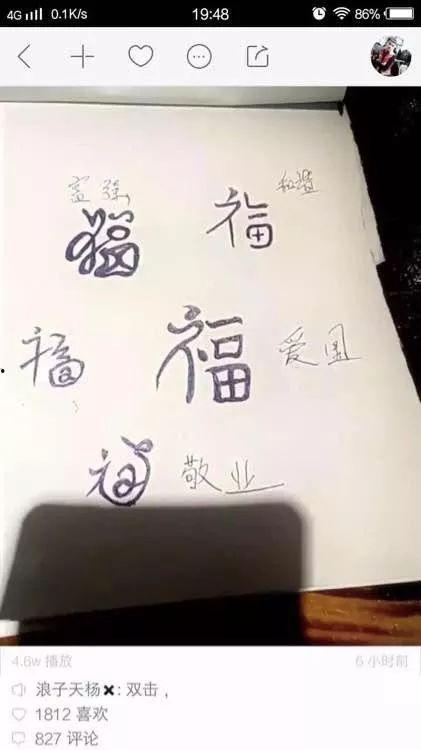 4G 0.1K/s 19:48 86%
富强 和谐
福 福
福 福 爱国
福 敬业
4.6w 播放 6 小时前
浪子天杨✖: 双击，
1812 喜欢
827 评论